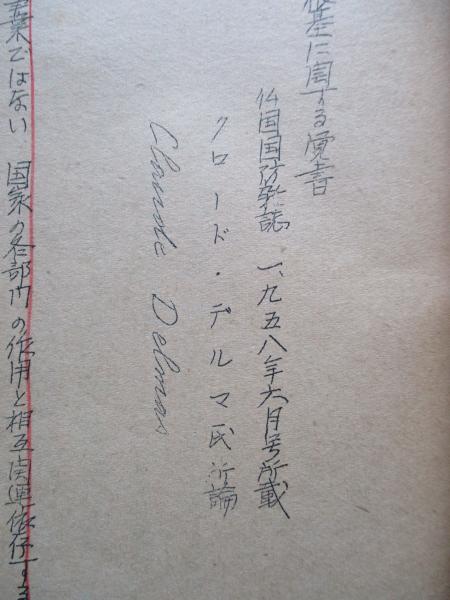 基に関する覚書
仏国国防雑誌 一、九五八年六月号所載
クロード・デルマ氏所論
Claude Delmas
業ではない 国家の各部門の作用と相互関連依存する